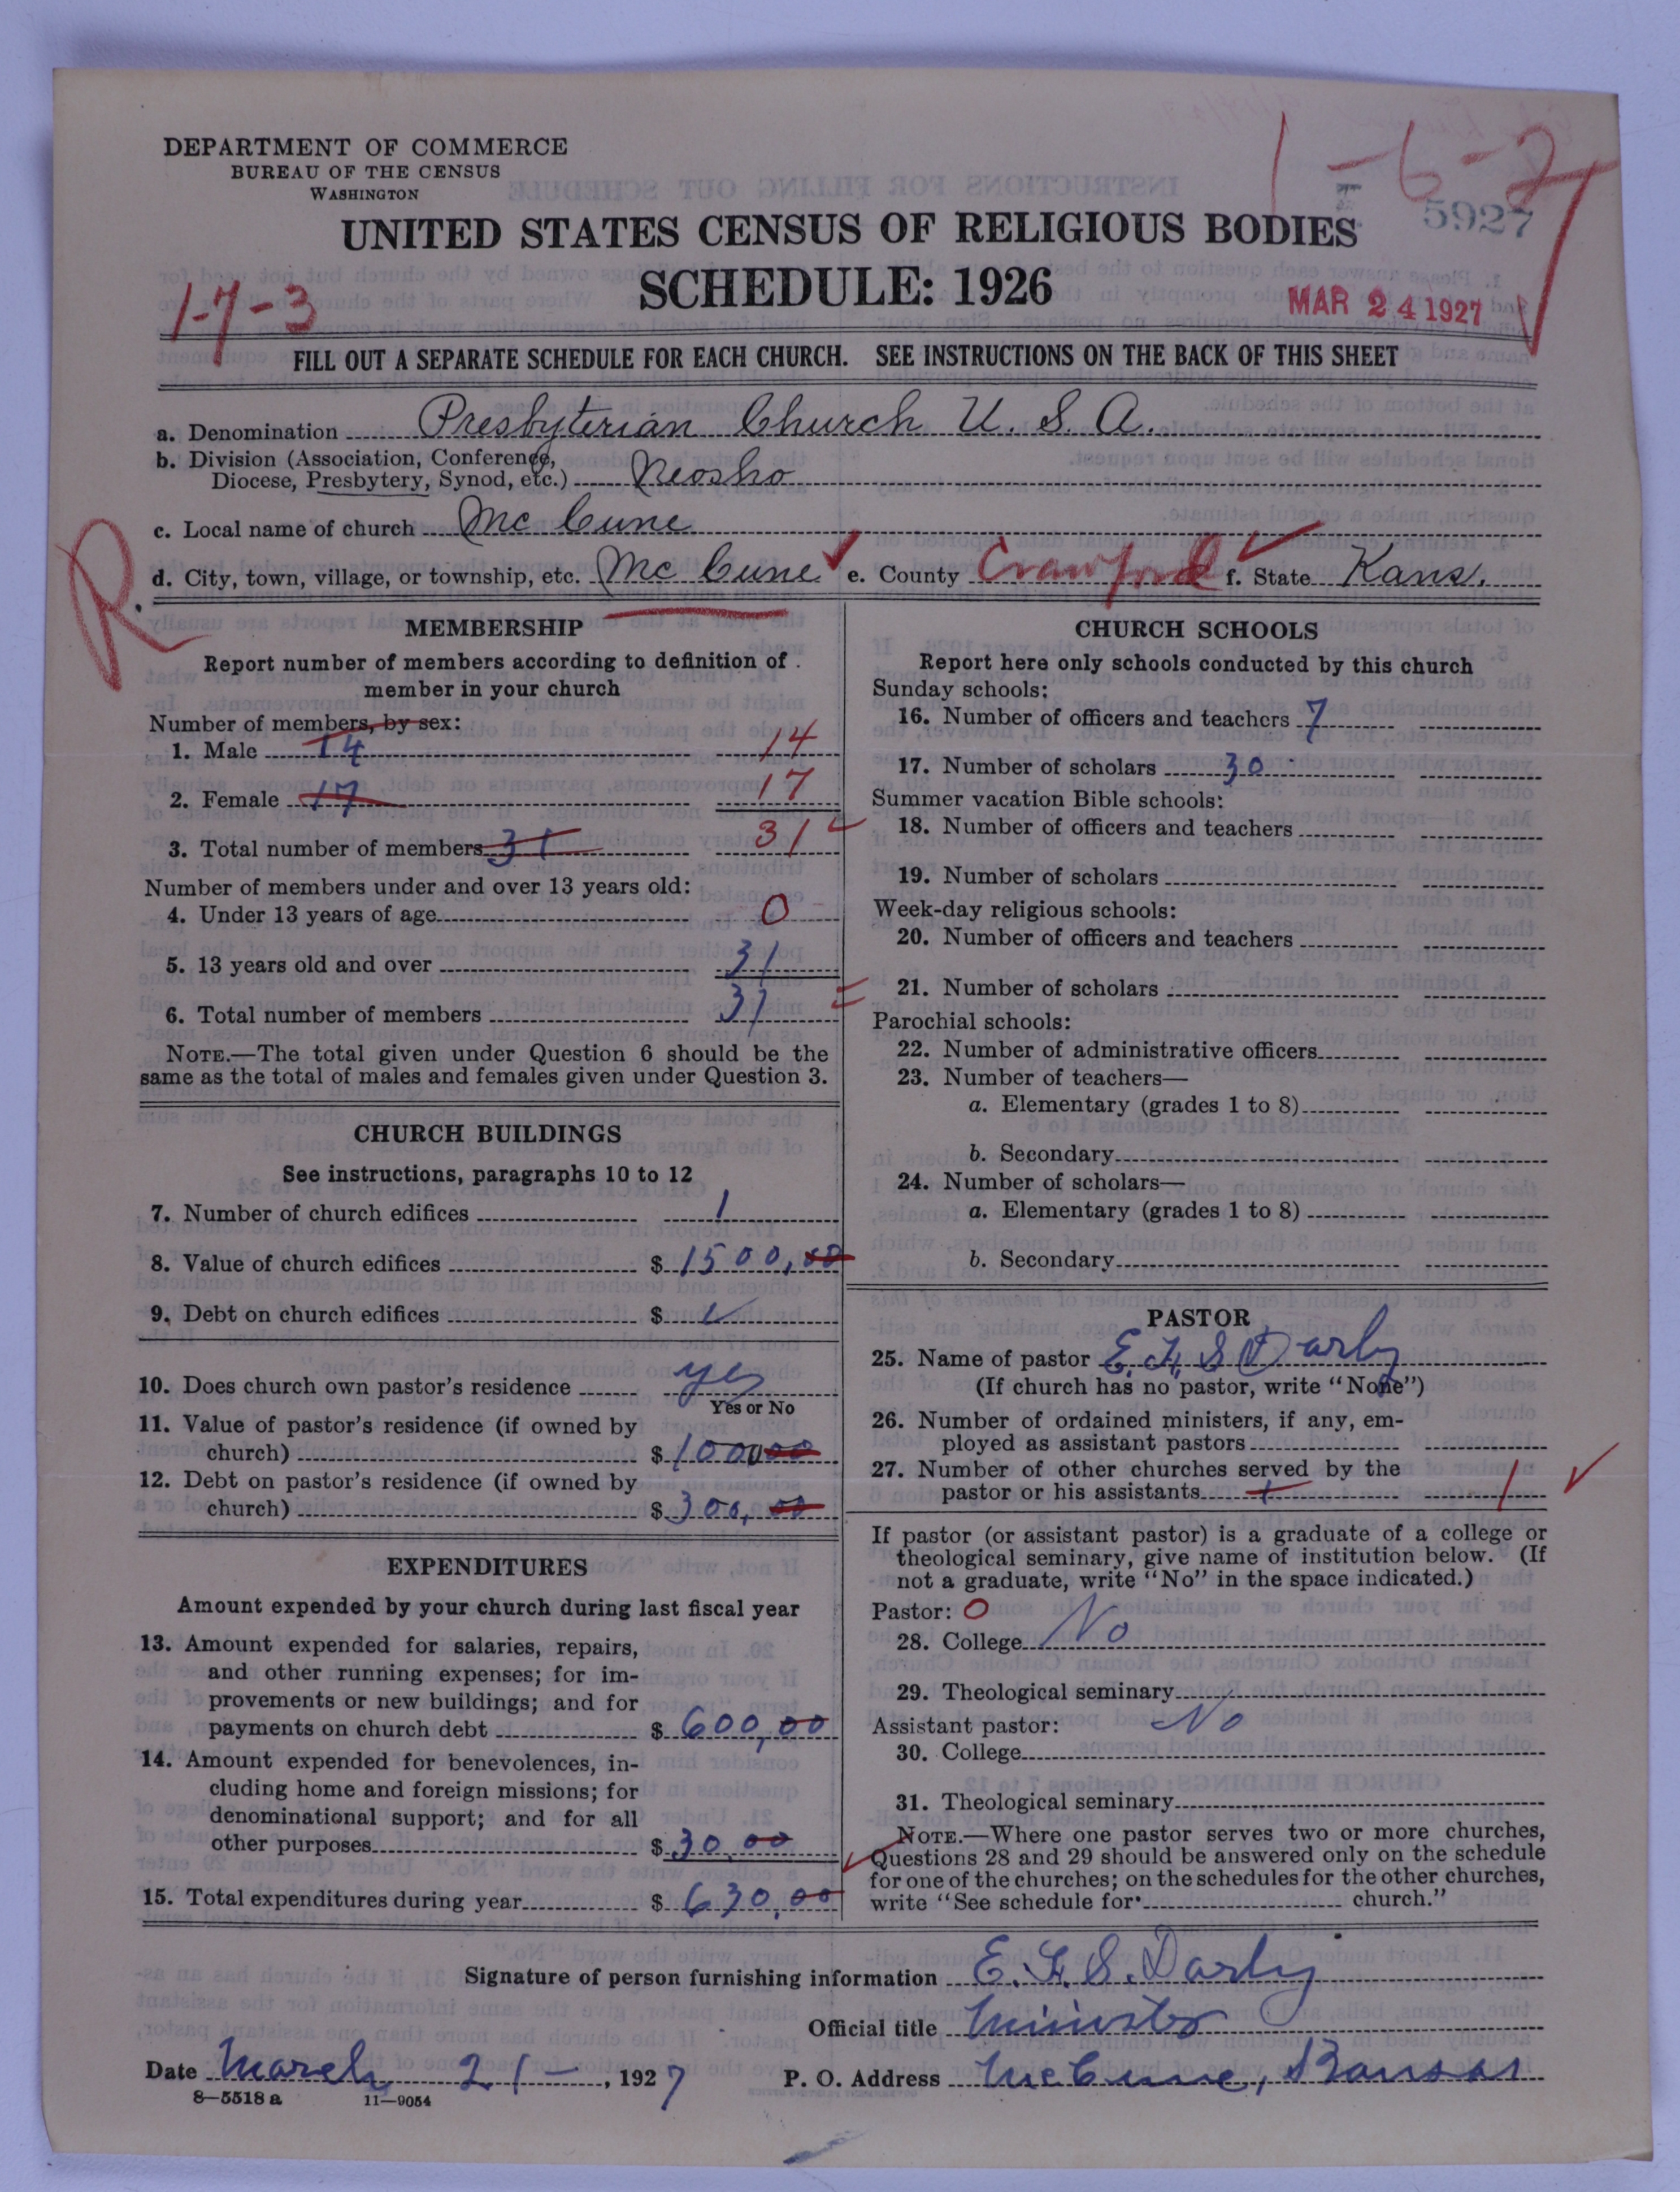 DEPARTMENT OF COMMERCE
BUREAU OF THE CENSUS
WASHINGTON
1-6-2
5927
UNITED STATES CENSUS OF RELIGIOUS BODIES
SCHEDULE: 1926
1-7-3
MAR 24 1927
FILL OUT A SEPARATE SCHEDULE FOR EACH CHURCH. SEE INSTRUCTIONS ON THE BACK OF THIS SHEET
a. Denomination Presbyterian Church U. S. A.
b. Division (Association, Conference,
Diocese, Presbytery, Synod, etc.) Neosho
c. Local name of church Mc Cune
d. City, town, village, or township, etc. Mc Cune e. County Crawford f. State Kans.
R.
MEMBERSHIP
Report number of members according to definition of
member in your church
Number of members, by sex:
1. Male 14 14
2. Female 17 17
3. Total number of members 31 31
Number of members under and over 13 years old:
4. Under 13 years of age 0
5. 13 years old and over 31
6. Total number of members 31
NOTE.—The total given under Question 6 should be the
same as the total of males and females given under Question 3.
CHURCH BUILDINGS
See instructions, paragraphs 10 to 12
7. Number of church edifices 1
8. Value of church edifices $ 1500,00
9. Debt on church edifices $
10. Does church own pastor's residence yes
Yes or No
11. Value of pastor's residence (if owned by
church) $ 100000
12. Debt on pastor's residence (if owned by
church) $ 300,00
EXPENDITURES
Amount expended by your church during last fiscal year
13. Amount expended for salaries, repairs,
and other running expenses; for im-
provements or new buildings; and for
payments on church debt $ 600,00
14. Amount expended for benevolences, in-
cluding home and foreign missions; for
denominational support; and for all
other purposes $ 30,00
15. Total expenditures during year $ 630,00
CHURCH SCHOOLS
Report here only schools conducted by this church
Sunday schools:
16. Number of officers and teachers 7
17. Number of scholars 30
Summer vacation Bible schools:
18. Number of officers and teachers
19. Number of scholars
Week-day religious schools:
20. Number of officers and teachers
21. Number of scholars
Parochial schools:
22. Number of administrative officers
23. Number of teachers—
a. Elementary (grades 1 to 8)
b. Secondary
24. Number of scholars—
a. Elementary (grades 1 to 8)
b. Secondary
PASTOR
25. Name of pastor E. F. S. Darby
(If church has no pastor, write "None")
26. Number of ordained ministers, if any, em-
ployed as assistant pastors
27. Number of other churches served by the
pastor or his assistants 1 1
If pastor (or assistant pastor) is a graduate of a college or
theological seminary, give name of institution below. (If
not a graduate, write "No" in the space indicated.)
Pastor: O
28. College No
29. Theological seminary
Assistant pastor: No
30. College
31. Theological seminary
NOTE.—Where one pastor serves two or more churches,
Questions 28 and 29 should be answered only on the schedule
for one of the churches; on the schedules for the other churches,
write "See schedule for church."
Signature of person furnishing information E. F. S. Darby
Official title Minister
Date March 21-, 1927 P. O. Address McCune, Kansas
8—5518 a 11—9054